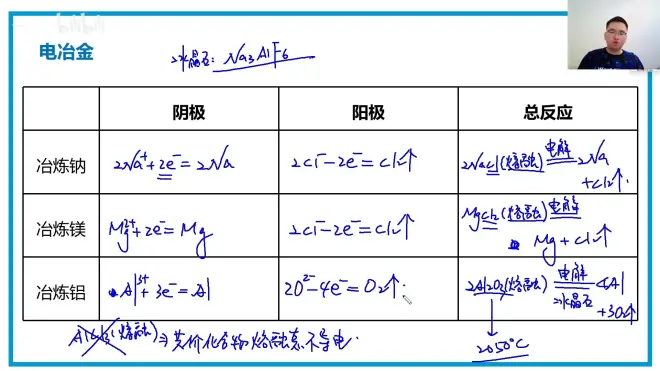 bilibili
电冶金
冰晶石: Na₃AlF₆
阴极 阳极 总反应
冶炼钠 2Na⁺+2e⁻=2Na 2Cl⁻-2e⁻=Cl₂↑ 2NaCl(熔融) 电解 2Na
+Cl₂↑.
冶炼镁 Mg²⁺+2e⁻=Mg 2Cl⁻-2e⁻=Cl₂↑ MgCl₂(熔融) 电解
Mg+Cl₂↑
冶炼铝 Al³⁺+3e⁻=Al 2O²⁻-4e⁻=O₂↑ 2Al₂O₃(熔融) 电解 冰晶石 4Al
+3O₂↑
AlCl₃(熔融)⇒共价化合物 熔融态不导电. 2050°C